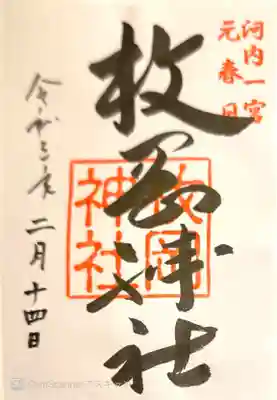 河内一宮
元春日
枚岡神社
枚岡
神社
令和三年二月十四日